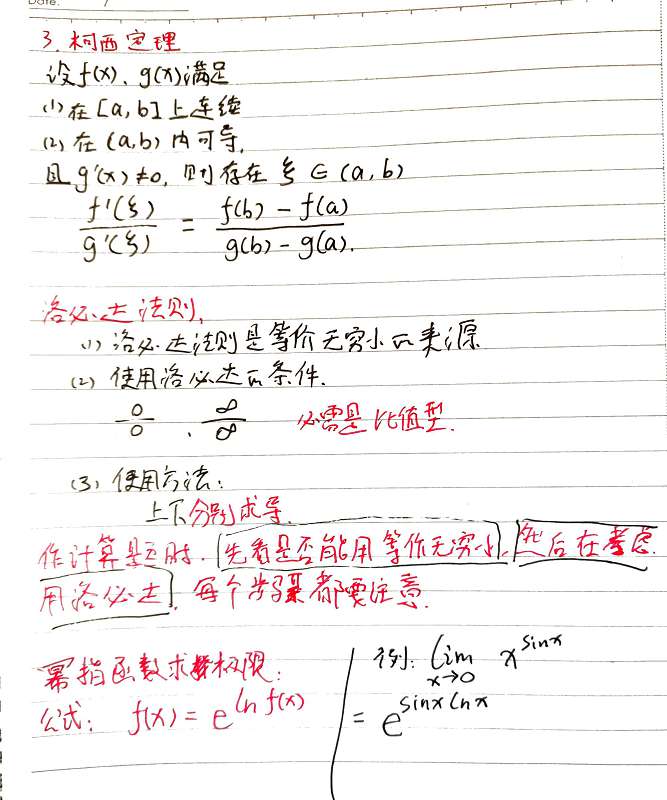 Date. /
3. 柯西定理
设f(x)、g(x)满足
(1) 在[a,b]上连续
(2) 在(a,b)内可导,
且g'(x)≠0, 则存在ξ∈(a,b)
f'(ξ)/g'(ξ) = f(b)-f(a)/g(b)-g(a).
洛必达法则,
(1) 洛必达法则是等价无穷小的来源
(2) 使用洛必达的条件.
0/0 、 ∞/∞ 必需是比值型.
(3) 使用方法:
上下分别求导.
作计算题时、先看是否能用等作无穷小, 然后在考虑
用洛必达, 每个步骤都要注意.
幂指函数求极限:
公式: f(x) = e^{ln f(x)}
例: lim_{x→0} x^{sinx}
= e^{sinx lnx}